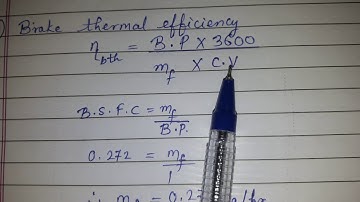 Brake thermal efficiency
η bth = B.P X 3600
m f X C.V
B.S.F.C = m f
B.P.
0.272 = m f
1
= 0.27